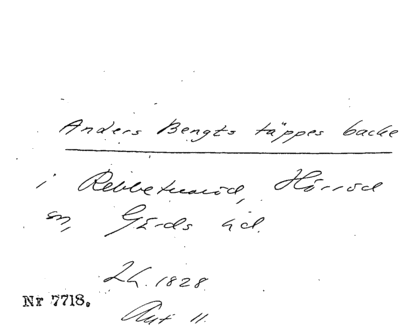 Anders Bengts täppes backe
i Rebbetuaröd, Hörröd
sn, Gärds hd.
Lh. 1828
Nr 7718.
Akt 11.